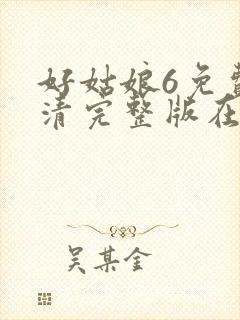 好姑娘6免费
清完整版在
吴某金